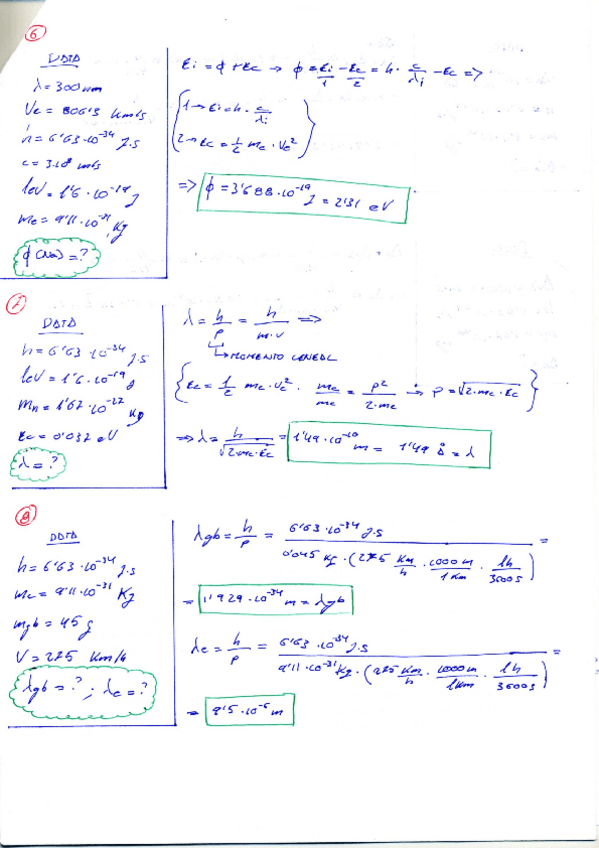 6
DATA
λ = 300 nm
Ve = 806'3 km/s
h = 6'63·10⁻³⁴ J.s
c = 3·10⁸ m/s
1eV = 1'6·10⁻¹⁹ J
me = 9'11·10⁻³¹ Kg
φ(Na) = ?
Ei = φ + Ec → φ = Ei/1 - Ec/2 = h · c/λi - Ec =>
1 → Ei = h · c/λi
2 → Ec = 1/2 me · Ve²
=> φ = 3'688·10⁻¹⁹ J = 2'31 eV
7
DATA
h = 6'63·10⁻³⁴ J.s
1eV = 1'6·10⁻¹⁹ J
mn = 1'67·10⁻²⁷ Kg
Ec = 0'037 eV
λ = ?
λ = h/p = h/m·v =>
MOMENTO LINEAL
Ec = 1/2 me·Ve² · me/me = p²/2·me → p = √2·me·Ec
=> λ = h/√2·me·Ec = 1'49·10⁻¹⁰ m = 1'49 Å = λ
8
DATA
h = 6'63·10⁻³⁴ J.s
me = 9'11·10⁻³¹ Kg
mgb = 45 g
V = 275 Km/h
λgb = ? ; λe = ?
λgb = h/p = 6'63·10⁻³⁴ J.s / 0'045 Kg · (275 Km/h · 1000 m/1 Km · 1h/3600s) =
= 1'929·10⁻³⁴ m = λgb
λe = h/p = 6'63·10⁻³⁴ J.s / 9'11·10⁻³¹ Kg · (275 Km/h · 1000 m/1 Km · 1h/3600s) =
= 9'5·10⁻⁶ m